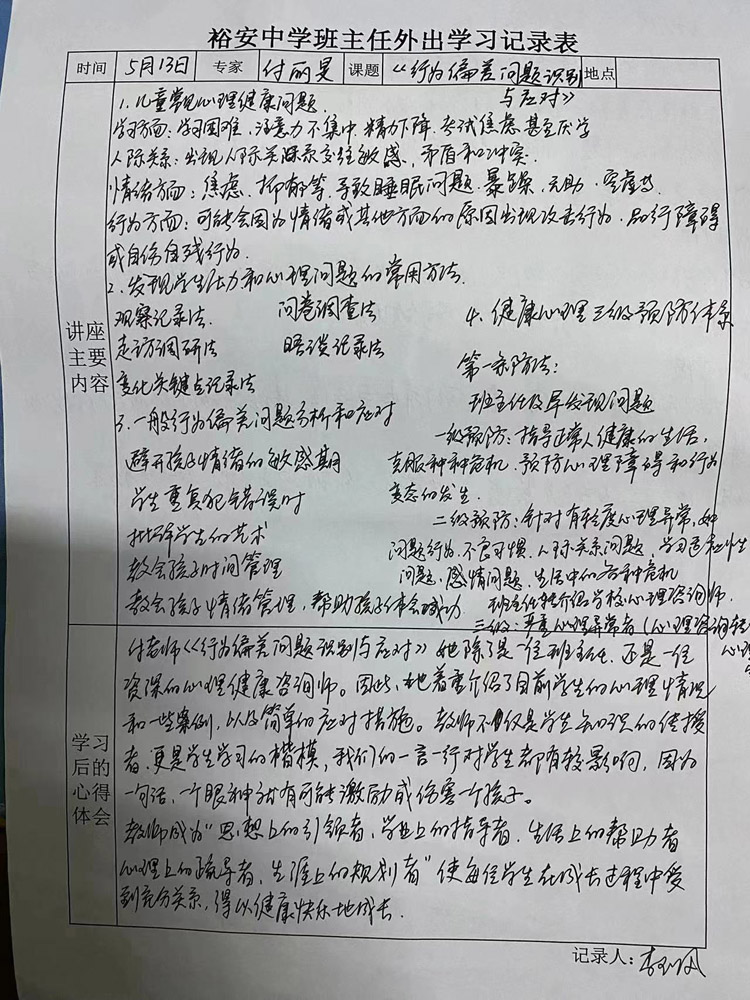 裕安中学班主任外出学习记录表
时间 5月13日 专家 付丽旻 课题 《行为偏差问题识别 地点
与应对》
讲座主要内容
1.儿童常见心理健康问题.
学习方面:学习困难,注意力不集中.精力下降,考试焦虑甚至厌学
人际关系:出现人际关系交往敏感,矛盾和冲突.
情绪方面:焦虑、抑郁等,导致睡眠问题.暴躁.无助.空虚等
行为方面:可能会因为情绪或其他方面的原因出现攻击行为.品行障碍
或自伤自残行为.
2.发现学生压力和心理问题的常用方法.
观察记录法. 问卷调查法
走访调研法 晤谈记录法
变化关键点记录法
3.一般行为偏差问题分析和应对
避开孩子情绪的敏感期
学生重复犯错误时
批评学生的艺术
教会孩子时间管理
教会孩子情绪管理,帮助孩子体会成功.
4.健康心理三级预防体系
第一条防法:
班主任及早发现问题
一级预防:指导正常人健康的生活,
克服种种危机.预防心理障碍和行为
变态的发生.
二级预防:针对有轻度心理异常,如
问题行为.不良习惯.人际关系问题,学习适应
问题、感情问题.生活中的各种危机
班主任转介绍学校心理咨询师.
三级:严重心理异常者(心理咨询
学习后的心得体会
付老师《行为偏差问题识别与应对》她除了是一位班主任,还是一位
资深的心理健康咨询师。因此,她着重介绍了目前学生的心理情况
和一些案例,以及简单的应对措施。教师不仅是学生知识的传授
者.更是学生学习的楷模,我们的一言一行对学生都有较影响,因为
一句话,一个眼神就有可能激励或伤害一个孩子。
教师成为"思想上的引领者,学业上的指导者.生活上的帮助者
心理上的疏导者,生涯上的规划者"使每位学生在成长过程中受
到充分关系,得以健康快乐地成长.
记录人: